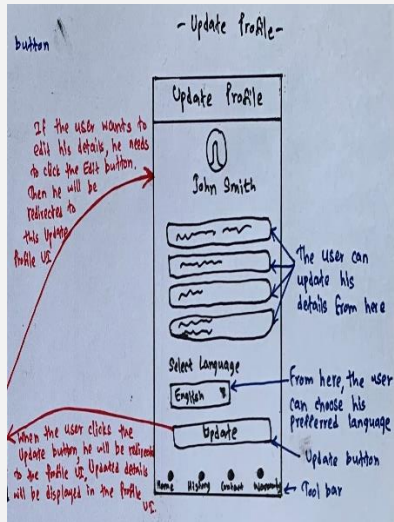 - Update Profile -
button
If the user wants to
edit his details, he needs
to click the Edit button.
Then he will be
redirected to
this Update
Profile UI.
Update Profile
John Smith
The user can
update his
details from here
Select Language
English
From here, the user
can choose his
preferred language
Update
Update button
When the user clicks the
Update button, he will be redirected
to the profile UI, Updated details
will be displayed in the profile
UI.
Home History Contact Warranty
Tool bar